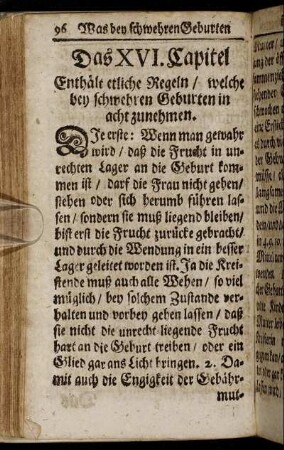 96 Was bey schwehren Geburten
Das XVI. Capitel
Enthält etliche Regeln / welche
bey schwehren Geburten in
acht zunehmen.
DJe erste: Wenn man gewahr
wird / daß die Frucht in un-
rechten Lager an die Geburt kom-
men ist / darf die Frau nicht gehen /
stehen oder sich herumb führen las-
sen / sondern sie muß liegend bleiben /
biß erst die Frucht zurücke gebracht /
und durch die Wendung in ein besser
Lager geleitet worden ist. Ja die Krei-
stende muß auch alle Wehen / so viel
müglich / bey solchem Zustande ver-
halten und vorbey gehen lassen / daß
sie nicht die unrecht liegende Frucht
hart an die Geburt treiben / oder ein
Glied gar ans Licht bringen. 2. Da-
mit auch die Engigkeit der Gebähr-
mut-